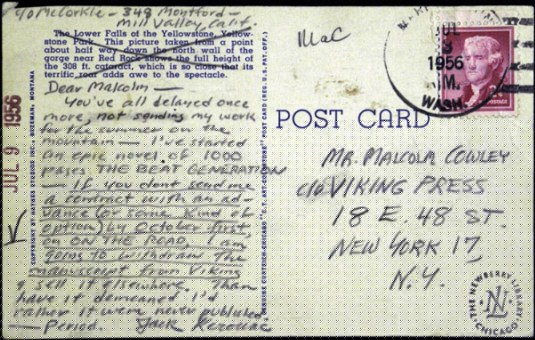 c/o McCorkle - 348 Montford -
Mill Valley, Calif.
The Lower Falls of the Yellowstone, Yellow-
stone Park. This picture taken from a point
about half way down the north wall of the
gorge near Red Rock shows the full height of
the 308 ft. cataract, which is so close that its
terrific roar adds awe to the spectacle.
Dear Malcolm —
You've all delayed once
more, not sending my work
for the summer on the
mountain — I've started
an epic novel of 1000
pages THE BEAT GENERATION
— If you dont send me
a contract with an ad-
vance (or some kind of
option) by October first,
on ON THE ROAD, I am
going to withdraw the
manuscript from Viking
& sell it elsewhere. Than
have it demeaned I'd
rather it were never published
— Period. Jack Kerouac
JUL 9 1956
COPYRIGHT BY HAYNES STUDIOS INC., BOZEMAN, MONTANA
GENUINE CURTEICH-CHICAGO "C.T. ART-COLORTONE" POST CARD (REG. U.S. PAT. OFF.)
Mac
JUL
3
1956
M.
WASH.
POST CARD
MR. MALCOLM COWLEY
c/o VIKING PRESS
18 E. 48 ST.
NEW YORK 17,
N.Y.
THE NEWBERRY LIBRARY
CHICAGO